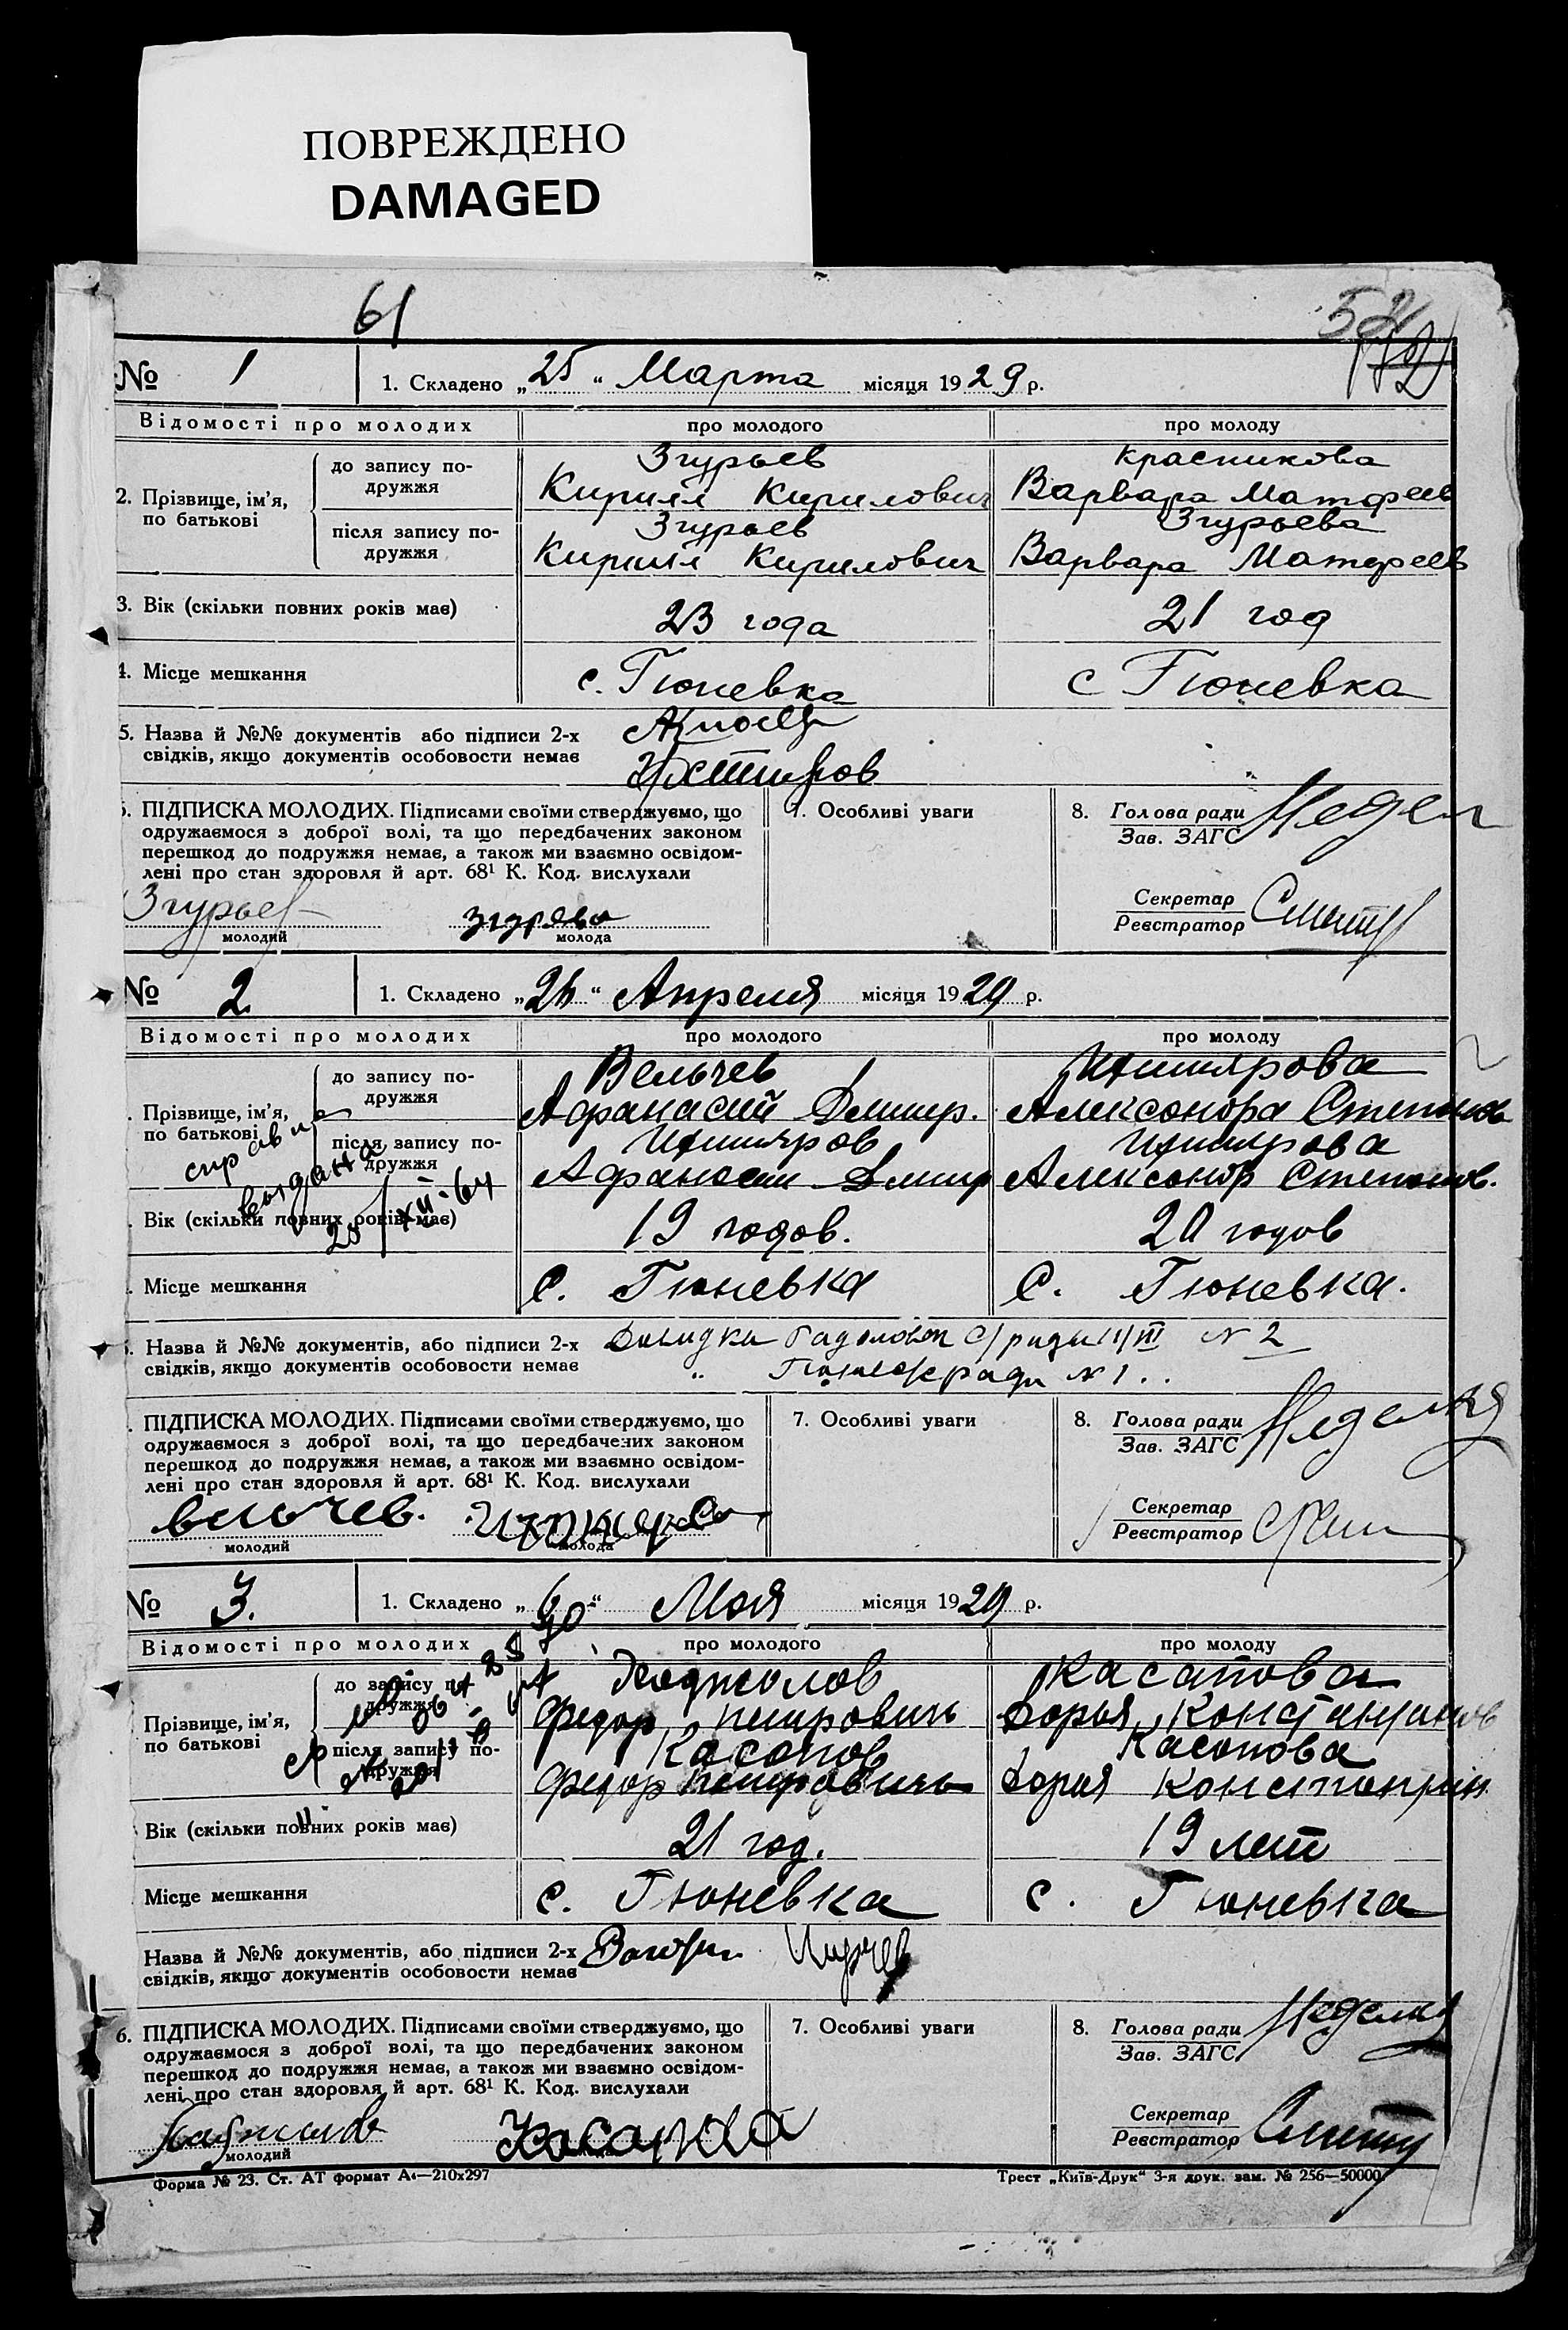 ПОВРЕЖДЕНО
DAMAGED
61
52
№ 1 1. Складено „25“ Марта місяця 1929 р.
Відомості про молодих про молодого про молоду
2. Прізвище, ім'я, по батькові
до запису по-
дружжя
Згурьев Красникова
Кирилл Кирилович Варвара Матфеев
після запису по-
дружжя
Згурьев Згурьева
Кирилл Кирилович Варвара Матфеев
3. Вік (скільки повних років має) 23 года 21 год
4. Місце мешкання с. Гюневка с Гюневка
5. Назва й №№ документів або підписи 2-х
свідків, якщо документів особовости немає
6. ПІДПИСКА МОЛОДИХ. Підписами своїми стверджуємо, що
одружаємося з доброї волі, та що передбачених законом
перешкод до подружжя немає, а також ми взаємно освідом-
лені про стан здоровля й арт. 68¹ К. Код. вислухали
Згурьев
молодий молода
7. Особливі уваги
8. Голова ради
Зав. ЗАГС
Секретар
Реєстратор
№ 2 1. Складено „26“ Апреля місяця 1929 р.
Відомості про молодих про молодого про молоду
Прізвище, ім'я,
по батькові
до запису по-
дружжя
Вельчев
Афанасий Димитр. Александра Степанов
після запису по-
дружжя
Афанасий Димитр Александр Степанов.
выдана
25/XII-64
Вік (скільки повних років має) 19 годов. 20 годов
Місце мешкання с. Гюневка с. Гюневка.
Назва й №№ документів, або підписи 2-х
свідків, якщо документів особовости немає
С/ради 11/III № 2
„ № 1
ПІДПИСКА МОЛОДИХ. Підписами своїми стверджуємо, що
одружаємося з доброї волі, та що передбачених законом
перешкод до подружжя немає, а також ми взаємно освідом-
лені про стан здоровля й арт. 68¹ К. Код. вислухали
Вельчев.
молодий молода
7. Особливі уваги
8. Голова ради
Зав. ЗАГС
Секретар
Реєстратор
№ 3. 1. Складено Мая місяця 1929 р.
Відомості про молодих про молодого про молоду
Прізвище, ім'я,
по батькові
до запису по-
дружжя
Касапова
Федор Петровичь Дорья Константинов
після запису по-
дружжя
Касапов Касапова
Федор Петровичь Дорья Константин
Вік (скільки повних років має) 21 год. 19 лет
Місце мешкання с. Гюневка с. Гюневка
Назва й №№ документів, або підписи 2-х
свідків, якщо документів особовости немає
6. ПІДПИСКА МОЛОДИХ. Підписами своїми стверджуємо, що
одружаємося з доброї волі, та що передбачених законом
перешкод до подружжя немає, а також ми взаємно освідом-
лені про стан здоровля й арт. 68¹ К. Код. вислухали
молодий
7. Особливі уваги
8. Голова ради
Зав. ЗАГС
Секретар
Реєстратор
Форма № 23. Ст. АТ формат А4—210х297 Трест „Київ-Друк“ 3-я друк. зам. № 256—50000